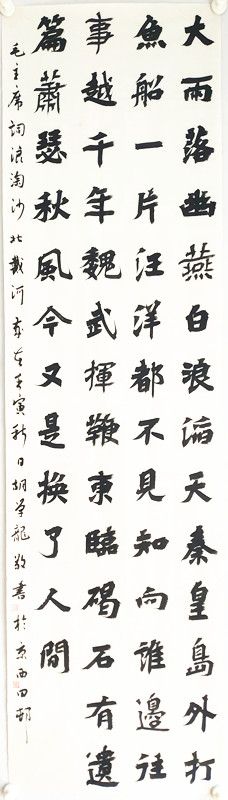 大雨落幽燕白浪滔天秦皇島外打
魚船一片汪洋都不見知向誰邊往
事越千年魏武揮鞭東臨碣石有遺
篇蕭瑟秋風今又是換了人間
毛主席詞浪淘沙北戴河歲在壬寅秋日胡龍敬書於京西田邨